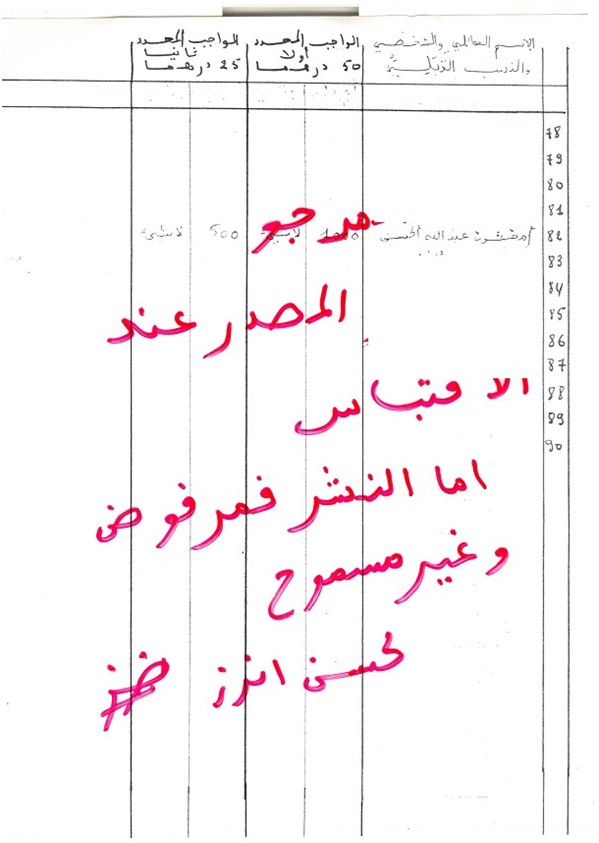 الإسم العائلي والشخصي
والنسب القبلي
الواجب المحدد
أولا
50 درهما
الواجب المحدد
ثانيا
25 درهما
78
79
80
81
82 عبد الله الحسن 1000 500
83
84
85
86
87
88
89
90
مرجع
المصدر عند
الاقتباس
اما النشر فمرفوض
وغير مسموح
لحسن